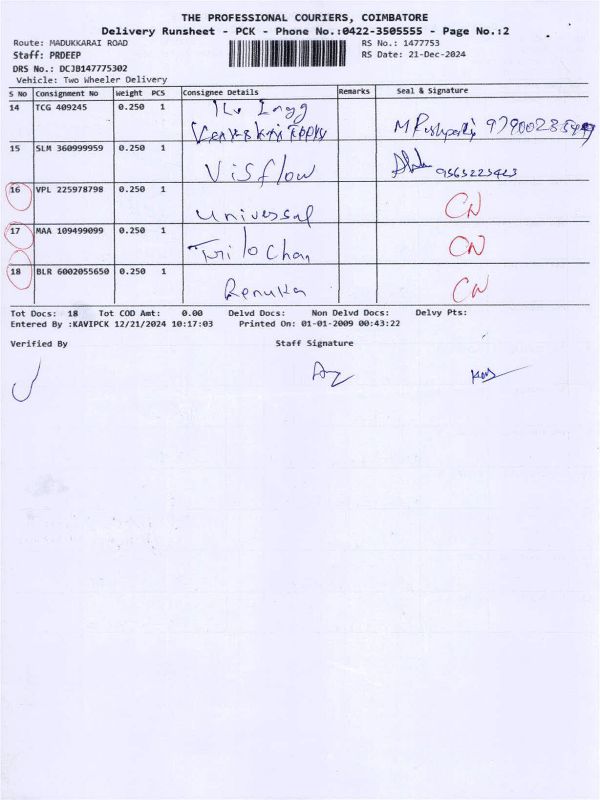 THE PROFESSIONAL COURIERS, COIMBATORE
Delivery Runsheet - PCK - Phone No.:0422-3505555 - Page No.:2
Route: MADUKKARAI ROAD RS No.: 1477753
Staff: PRDEEP RS Date: 21-Dec-2024
DRS No.: DCJB147775302
Vehicle: Two Wheeler Delivery
S No Consignment No Weight PCS Consignee Details Remarks Seal & Signature
14 TCG 409245 0.250 1
15 SLM 360999959 0.250 1 Visflow 9565223423
16 VPL 225978798 0.250 1 Universal CN
17 MAA 109499099 0.250 1 Trilo Chan CN
18 BLR 6002055650 0.250 1 Renuka CN
Tot Docs: 18 Tot COD Amt: 0.00 Delvd Docs: Non Delvd Docs: Delvy Pts:
Entered By :KAVIPCK 12/21/2024 10:17:03 Printed On: 01-01-2009 00:43:22
Verified By Staff Signature